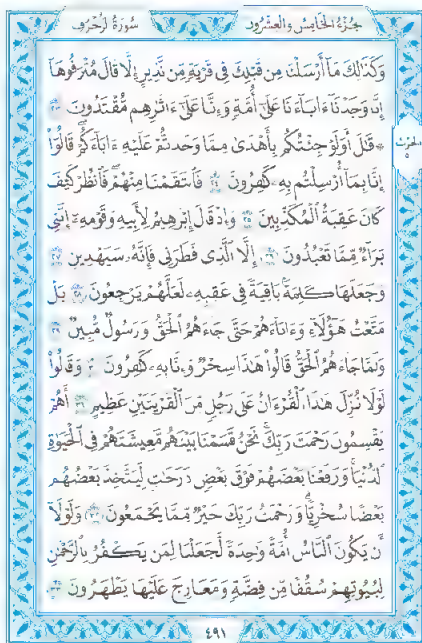 سُورَةُ الزُّخْرُفِ
جُزْءُ الْخَامِسُ وَالْعِشْرُونَ
وَكَذَٰلِكَ مَا أَرْسَلْنَا مِن قَبْلِكَ فِي قَرْيَةٍ مِّن نَّذِيرٍ إِلَّا قَالَ مُتْرَفُوهَا
إِنَّا وَجَدْنَا ءَابَاءَنَا عَلَىٰ أُمَّةٍ وَإِنَّا عَلَىٰ ءَاثَٰرِهِم مُّقْتَدُونَ ٢٣
* قَٰلَ أَوَلَوْ جِئْتُكُم بِأَهْدَىٰ مِمَّا وَجَدتُّمْ عَلَيْهِ ءَابَاءَكُمْ قَالُوا
إِنَّا بِمَا أُرْسِلْتُم بِهِ كَٰفِرُونَ ٢٤ فَانتَقَمْنَا مِنْهُمْ فَانظُرْ كَيْفَ
كَانَ عَٰقِبَةُ الْمُكَذِّبِينَ ٢٥ وَإِذْ قَالَ إِبْرَٰهِيمُ لِأَبِيهِ وَقَوْمِهِ إِنَّنِي
بَرَاءٌ مِّمَّا تَعْبُدُونَ ٢٦ إِلَّا الَّذِي فَطَرَنِي فَإِنَّهُ سَيَهْدِينِ ٢٧
وَجَعَلَهَا كَلِمَةً بَاقِيَةً فِي عَقِبِهِ لَعَلَّهُمْ يَرْجِعُونَ ٢٨ بَلْ
مَتَّعْتُ هَٰؤُلَاءِ وَءَابَاءَهُمْ حَتَّىٰ جَاءَهُمُ الْحَقُّ وَرَسُولٌ مُّبِينٌ ٢٩
وَلَمَّا جَاءَهُمُ الْحَقُّ قَالُوا هَٰذَا سِحْرٌ وَإِنَّا بِهِ كَٰفِرُونَ ٣٠ وَقَالُوا
لَوْلَا نُزِّلَ هَٰذَا الْقُرْءَانُ عَلَىٰ رَجُلٍ مِّنَ الْقَرْيَتَيْنِ عَظِيمٍ ٣١ أَهُمْ
يَقْسِمُونَ رَحْمَتَ رَبِّكَ نَحْنُ قَسَمْنَا بَيْنَهُم مَّعِيشَتَهُمْ فِي الْحَيَوٰةِ
الدُّنْيَا وَرَفَعْنَا بَعْضَهُمْ فَوْقَ بَعْضٍ دَرَجَٰتٍ لِّيَتَّخِذَ بَعْضُهُم
بَعْضًا سُخْرِيًّا وَرَحْمَتُ رَبِّكَ خَيْرٌ مِّمَّا يَجْمَعُونَ ٣٢ وَلَوْلَا
أَن يَكُونَ النَّاسُ أُمَّةً وَٰحِدَةً لَّجَعَلْنَا لِمَن يَكْفُرُ بِالرَّحْمَٰنِ
لِبُيُوتِهِمْ سُقُفًا مِّن فِضَّةٍ وَمَعَارِجَ عَلَيْهَا يَظْهَرُونَ ٣٣
الحزب
٤٩١